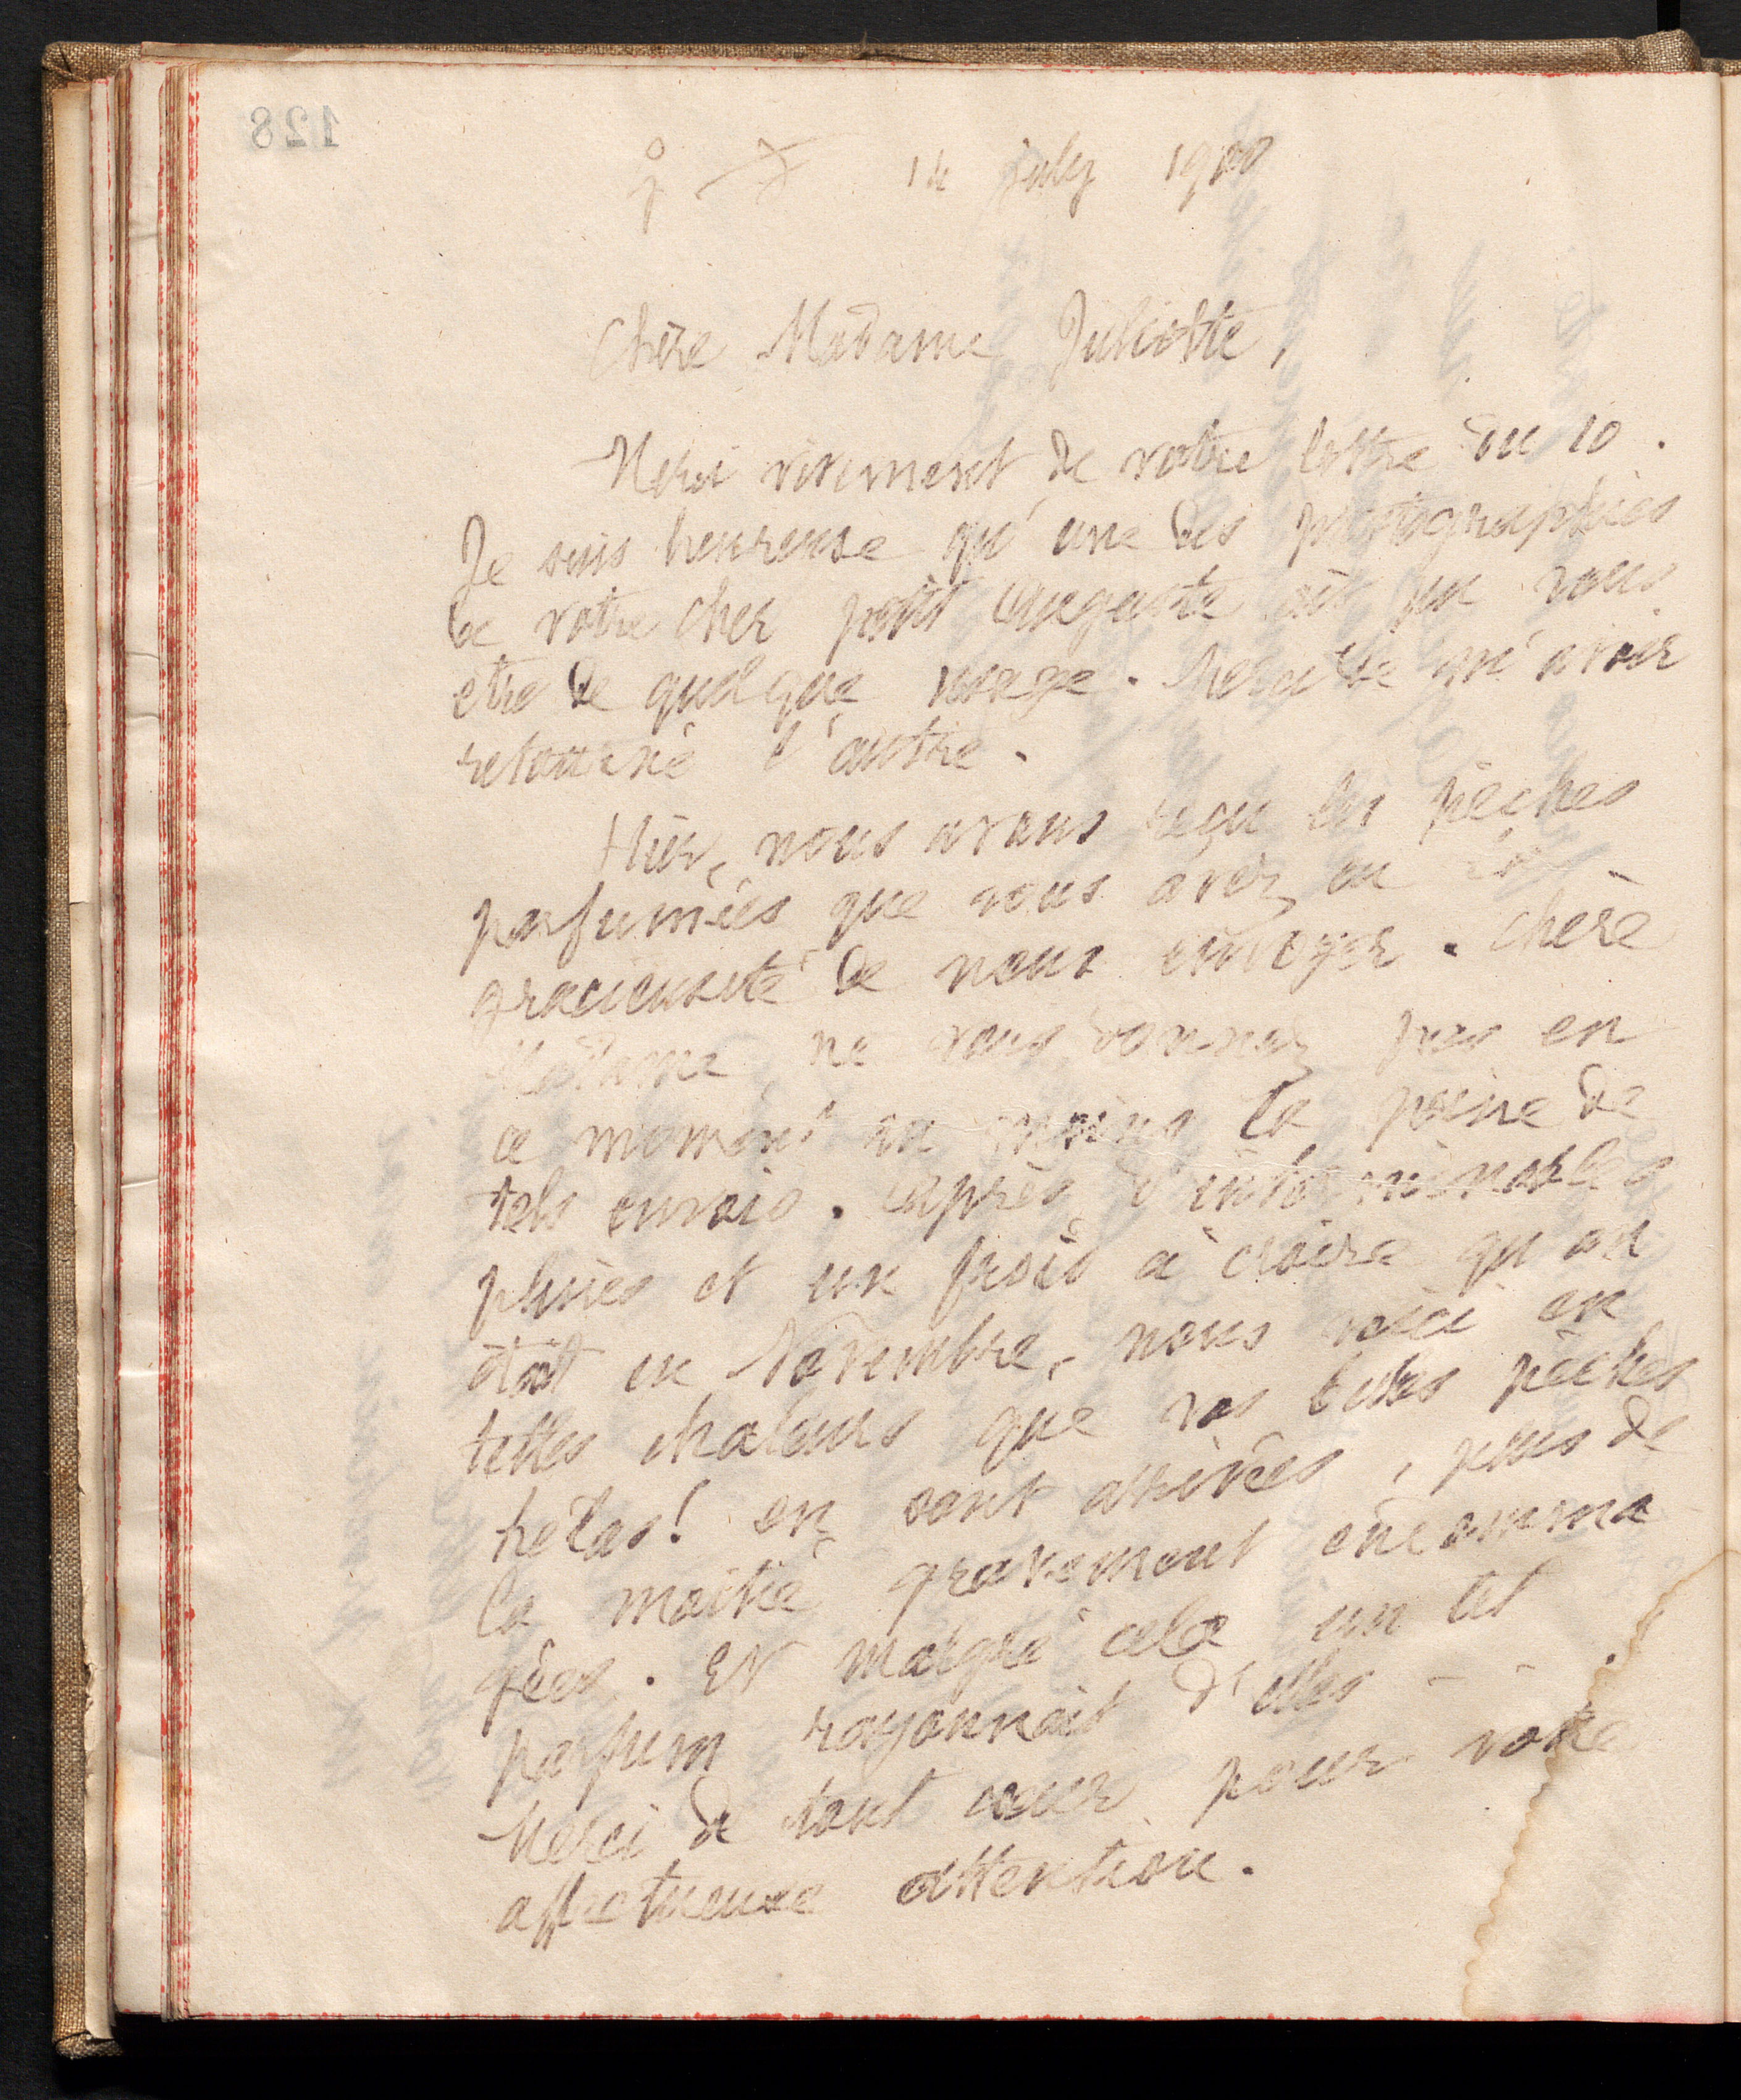 128
14 july 1900
Chère Madame Juliette,
Merci vivement de votre lettre du 10.
Je suis heureuse qu'une des photographies
de votre cher petit Auguste ait pu vous
être de quelque usage. Merci de m'avoir
retourné l'autre.
Hier, nous avons reçu les pêches
parfumées que vous avez eu la
gracieuseté de nous envoyer. Chère
Madame, ne vous donnez pas en
ce moment au moins la peine de
tels envois. Après d'interminables
pluies et un froid à croire qu'on
était en Novembre, nous voici en
telles chaleurs que vos belles pêches
hélas! en sont arrivées, plus de
la moitié gravement endomma
gées. Et malgré cela un tel
parfum rayonnait d'elles - - .
Merci de tout cœur pour votre
affectueuse attention.